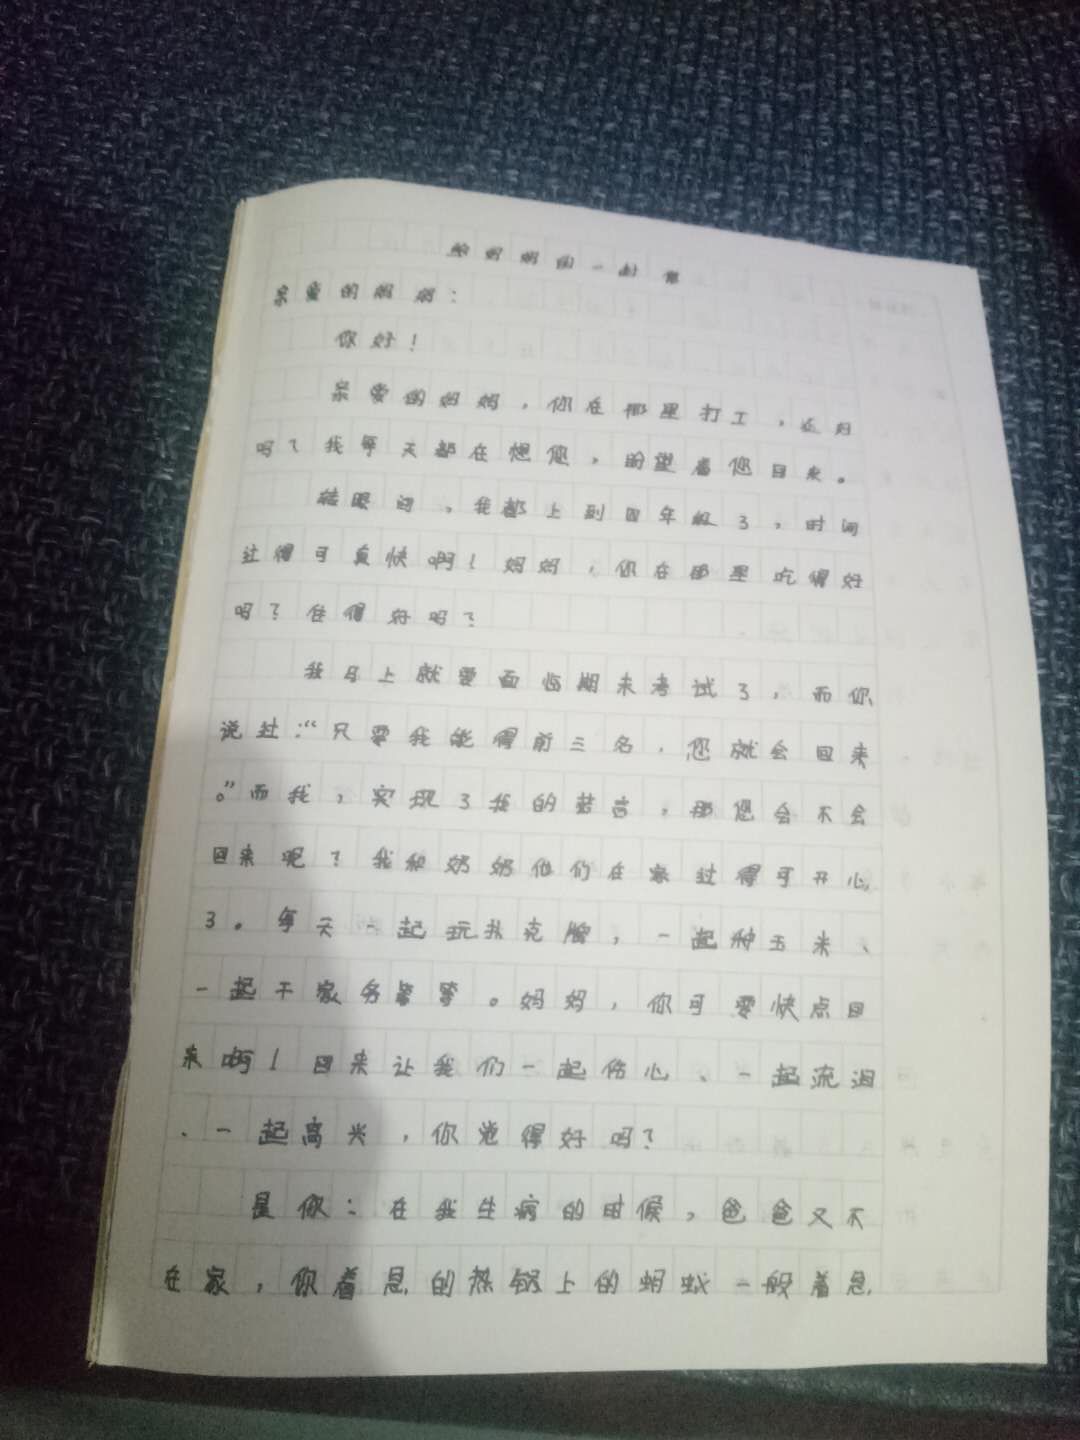 给妈妈的一封信
亲爱的妈妈：
你好！
亲爱的妈妈，你在那里打工，还好
吗？我每天都在想您，盼望着您回来。
转眼间，我都上到四年级了，时间
过得可真快啊！妈妈，你在那里吃得好
吗？住得好吗？
我马上就要面临期末考试了，而你
说过：“只要我能得前三名，您就会回来
。”而我，实现了我的若言，那您会不会
回来呢？我和奶奶他们在家过得可开心
了。每天一起玩扑克牌，一起种玉米、
一起干家务等等。妈妈，你可要快点回
来啊！回来让我们一起伤心、一起流泪
、一起高兴，你觉得好吗？
是你：在我生病的时候，爸爸又不
在家，你着急的热锅上的蚂蚁一般着急